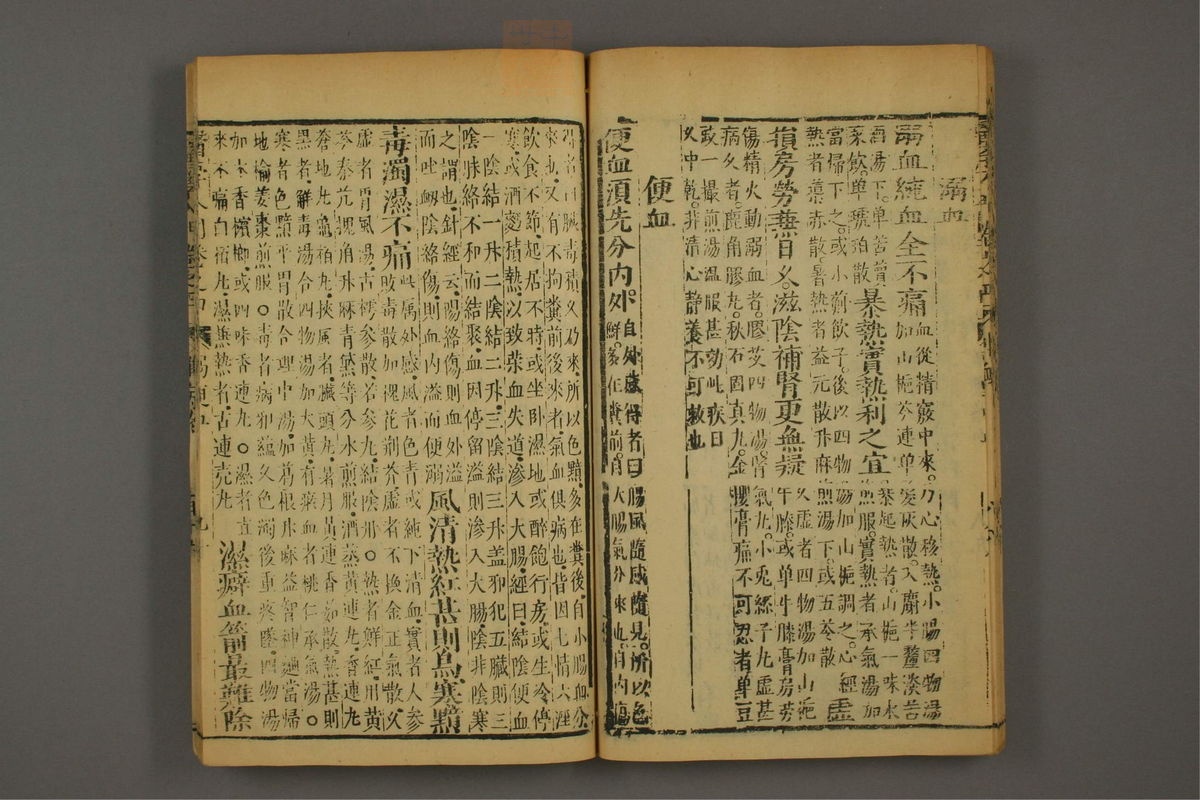 溺血
溺血純血全不痛血從精竅中來乃心移熱小腸四物湯
加山梔芩連單髮灰散入麝半釐淡苦
酒湯下單苦蕒暴熱實熱利之宜暴起熱者山梔一味水
煎服實熱者承氣湯加
豕飲單琥珀散
當歸下之或小薊飲子後以四物湯加山梔調之心經
熱者導赤散暑熱者益元散升麻煎湯下或五苓散虛
損房勞兼日久滋陰補腎更無疑久虛者四物湯加山梔
牛膝或單牛膝膏房勞
傷精火動弱血者膠艾四物湯腎氣丸小兔絲子丸虛甚
病久者鹿角膠丸秋石固真丸金
腰膏痛不可忍者單豆
豉一撮煎湯溫服甚効此疾日
久中乾非清心靜養不可救也
便血
便血須先分內外自外感得者曰腸風隨感隨見所以色
鮮多在糞前自大腸氣分來也自內傷
得者曰臟毒積久乃來所以色黯多在糞後自小腸血分
來也又有不拘糞前後來者氣血俱病也皆因七情六淫
飲食不節起居不時或坐卧濕地或醉飽行房或生冷停
寒或酒麵積熱以致榮血失道滲入大腸經曰結陰便血
一陰結一升二陰結二升三陰結三升蓋邪犯五臟則三
陰脉絡不和而結聚血因停留溢則滲入大腸陰非陰寒
之謂也針經云陽絡傷則血外溢
而吐衂陰絡傷則血內溢而便溺風清熱紅甚則烏寒黯
毒濁濕不痛此属外感風者色青或純下清血實者人參
敗毒散加槐花荊芥虛者不換金正氣散久
虛者胃風湯古樗參散若參丸結陰丹熱者鮮紅用黃
芩秦艽槐角升麻青黛等分水煎服酒蒸黃連丸香連丸
蒼地丸龜柏丸挾風者臟頭丸暑月黃連香薷散熱甚則
黑者解毒湯合四物湯加大黃有瘀血者桃仁承氣湯
寒者色黯平胃散合理中湯加葛根升麻益智神麯當歸
地榆姜棗煎服毒者病邪蘊久色濁後重疼墜四物湯
加木香檳榔或四味香連丸濕者直
來不痛白宿丸濕兼熱者古連壳丸濕癖血箭最難除